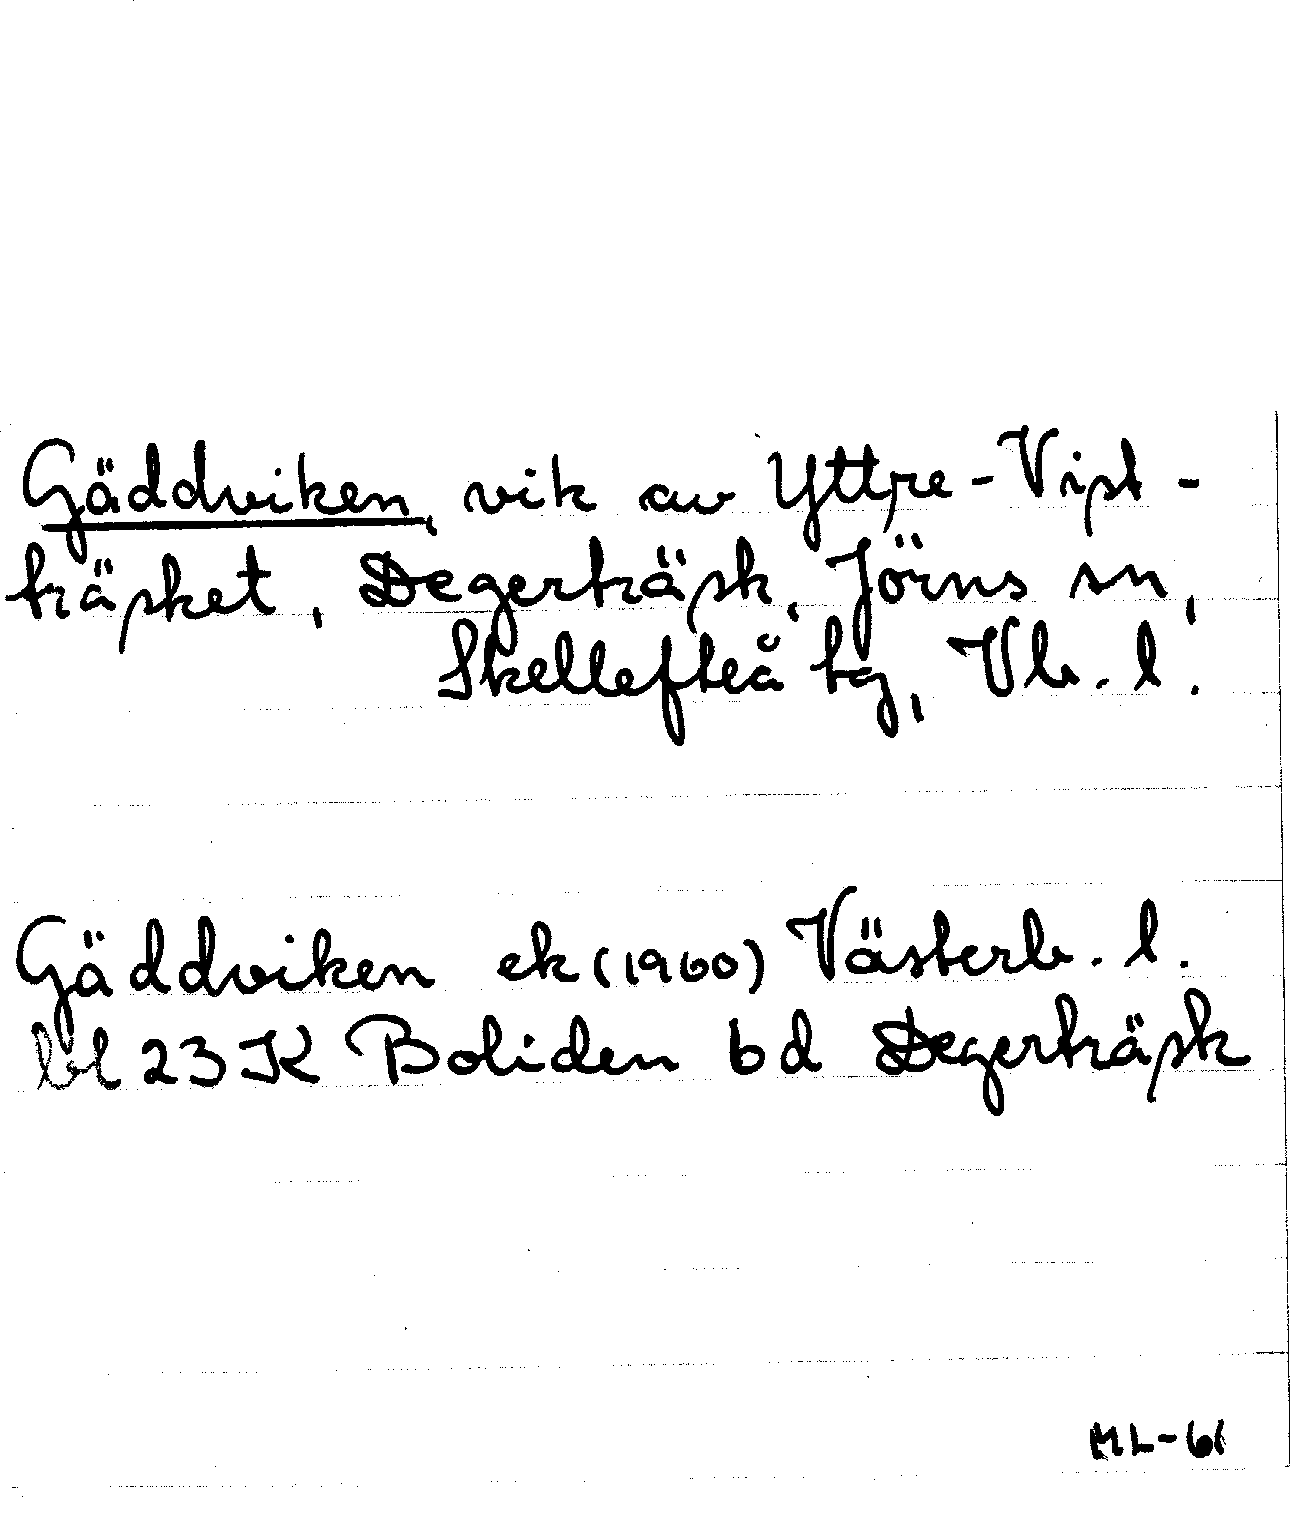 Gäddviken, vik av Yttre-Vist-
träsket, Degerträsk, Jörns sn,
Skellefteå tg, Vb. l.
Gäddviken ek (1960) Västerb. l.
bl 23 K Boliden bd Degerträsk
ML-61